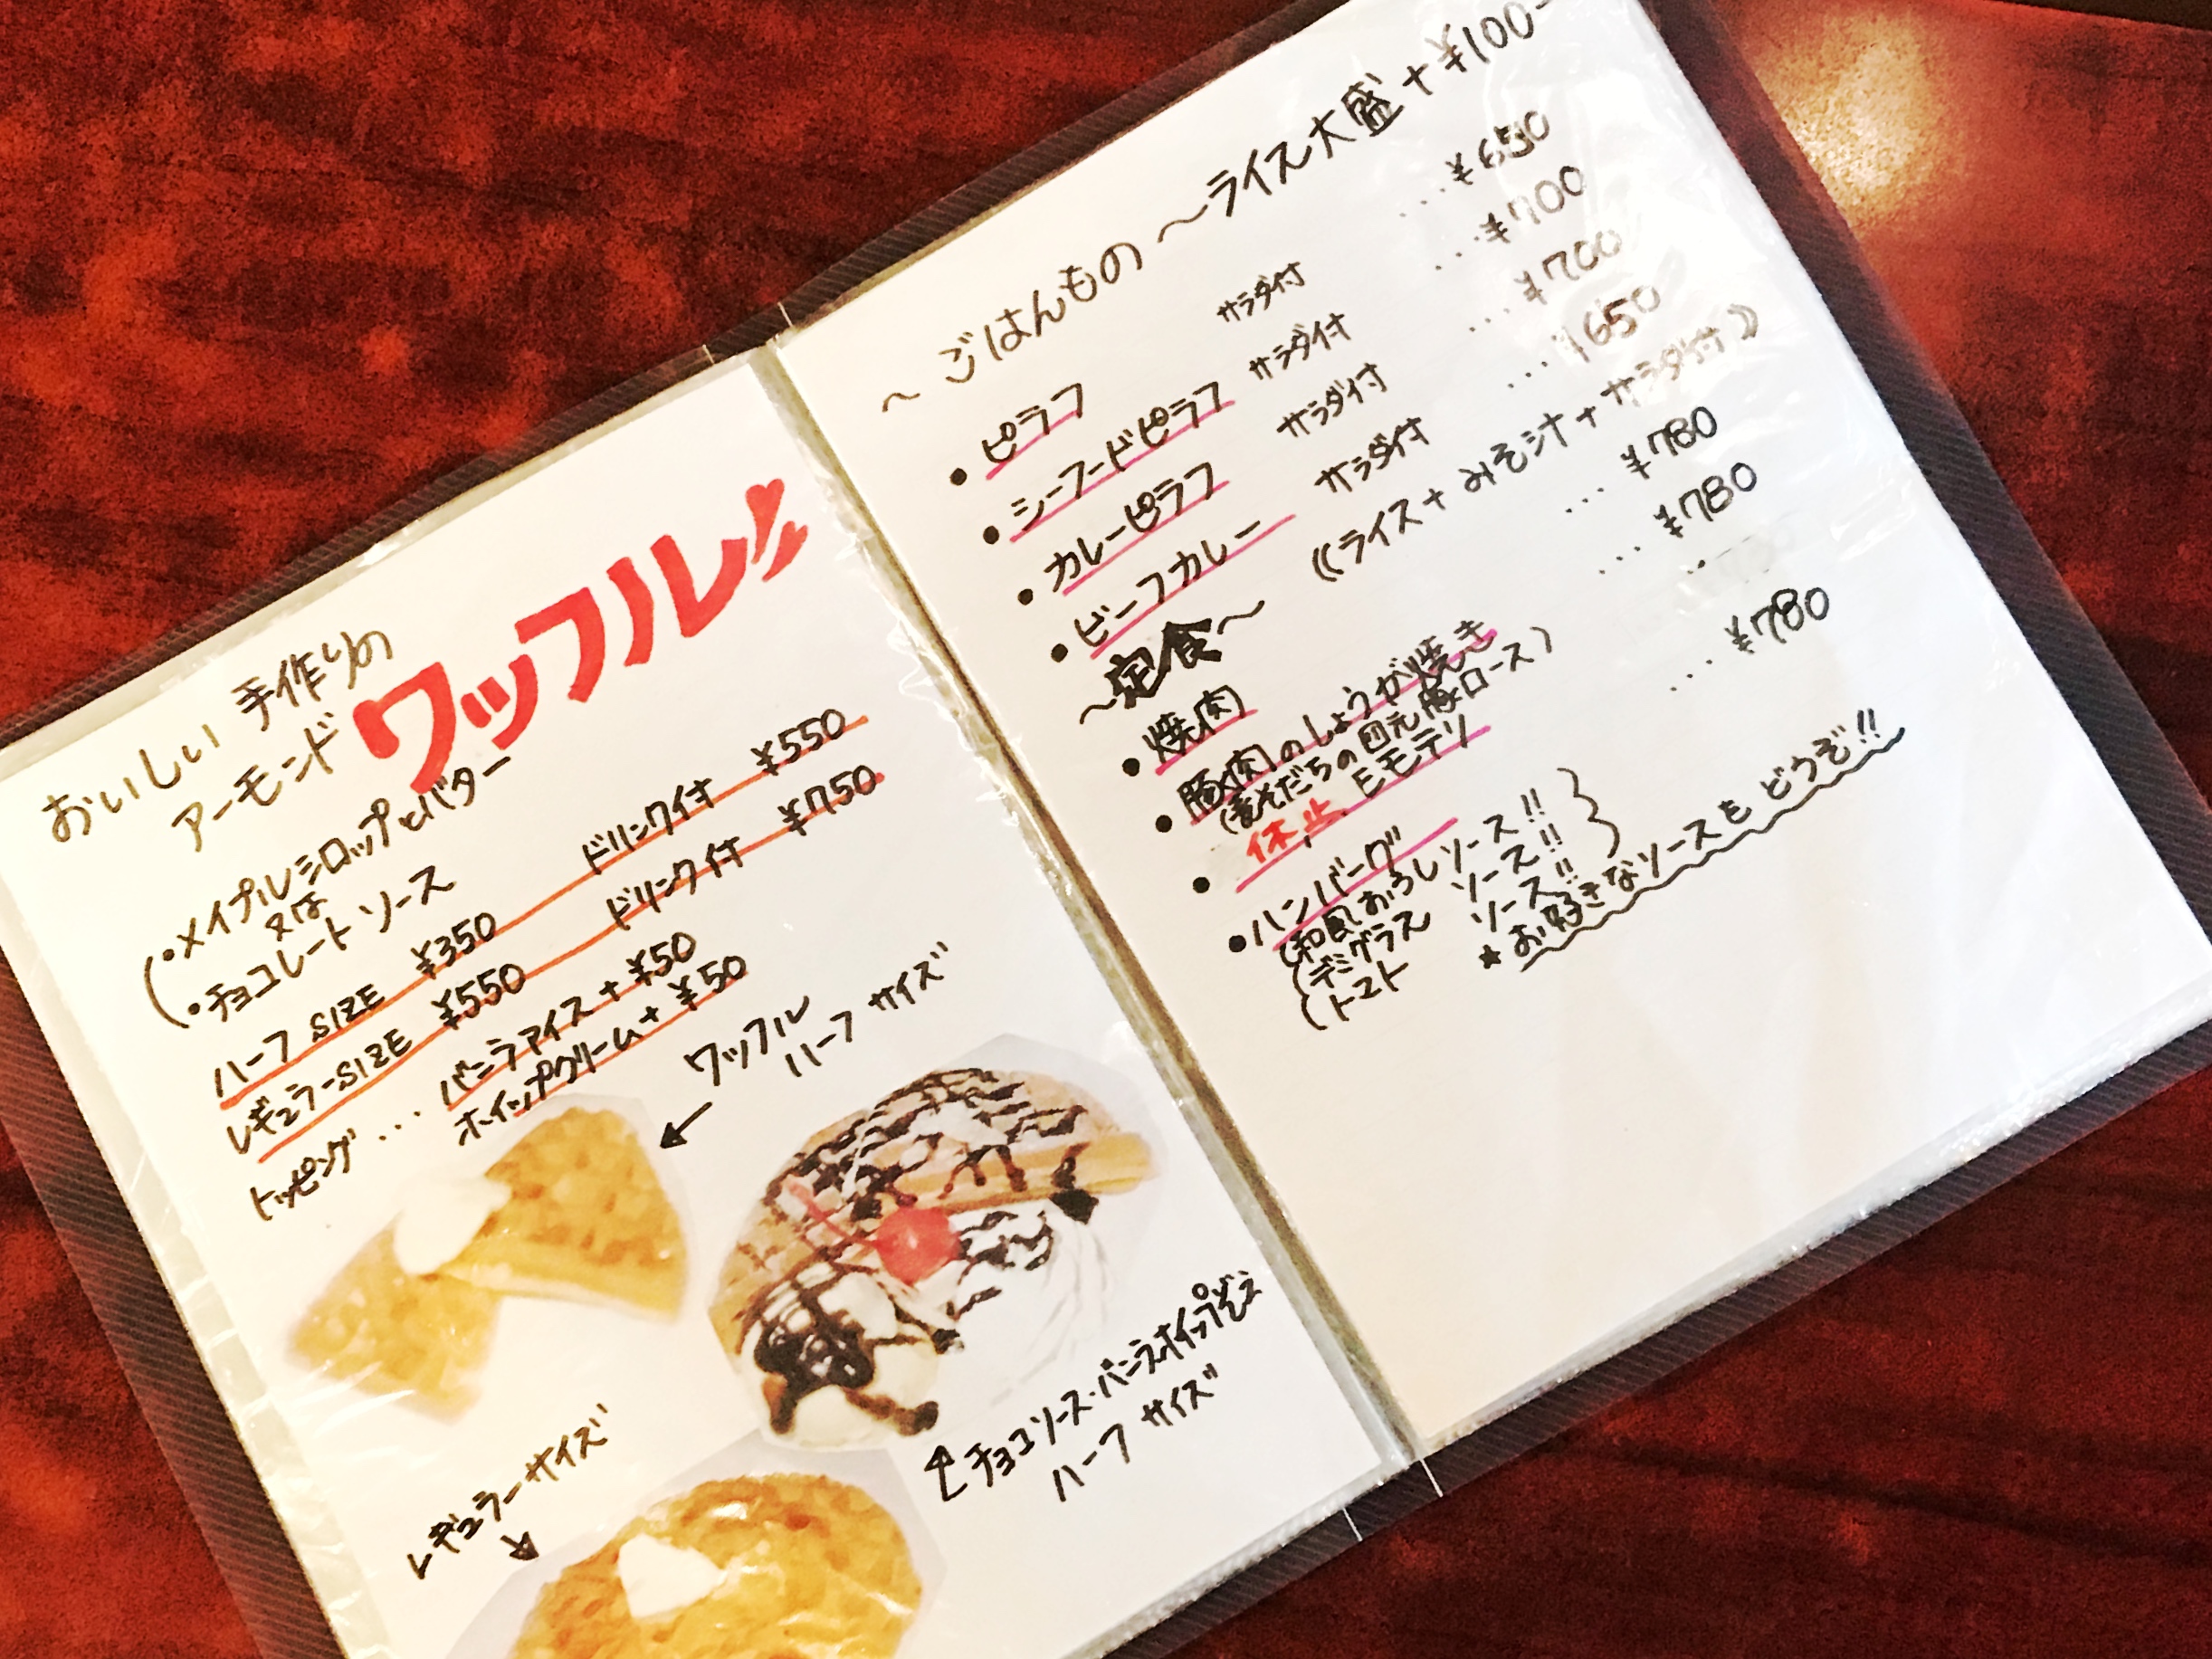 おいしい 手作りの
アーモンド ワッフル!!
・メイプルシロップとバター
又は
・チョコレートソース
ハーフ SIZE ¥350 ドリンク付 ¥550
レギュラーSIZE ¥550 ドリンク付 ¥750
トッピング... バニラアイス+¥50
ホイップクリーム+¥50
← ワッフル
ハーフ サイズ
レギュラーサイズ
↑チョコソース・バニラホイップぞえ
ハーフ サイズ
～ ごはんもの ～ライス大盛 +¥100-
・ピラフ サラダ付 ...¥650
・シーフードピラフ サラダ付 ...¥700
・カレーピラフ サラダ付 ...¥700
・ビーフカレー サラダ付 ...¥650
～定食～ 《ライス+みそ汁+サラダ付》
・焼肉 ...¥780
・豚肉のしょうが焼き ...¥780
(麦そだちの四元豚ロース)
・休止 モモテリ
・ハンバーグ ...¥780
(和風おろしソース!!
(デミグラス ソース!!
(トマト ソース!!
★お好きなソースをどうぞ!!